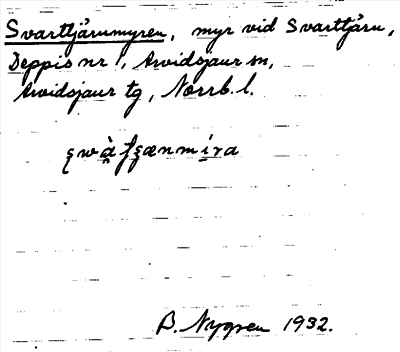 Svarttjärnmyren, myr vid Svarttjärn,
Deppis nr 1, Arvidsjaur sn,
Arvidsjaur tg, Norrb. l.
B. Nygren 1932.